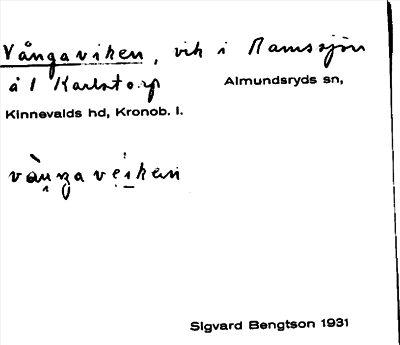 Vångaviken, vik i Ramssjön
å 1 Karlstorp Almundsryds sn,
Kinnevalds hd, Kronob. l.
vàŋga veiken
Sigvard Bengtson 1931